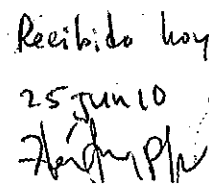 Recibido hoy
25 Jun 10